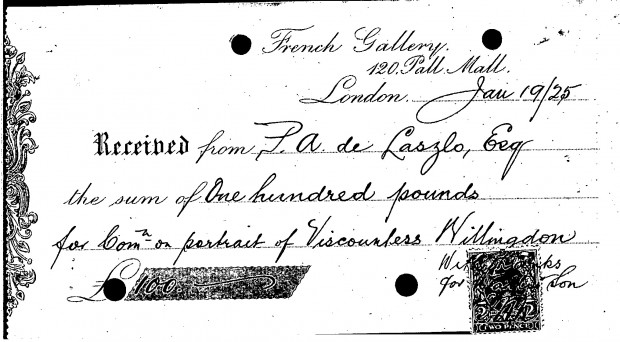 French Gallery.
120, Pall Mall.
London. Jan 19/25
Received from P. A. de Laszlo, Esq
the sum of One hundred pounds
for Comn on portrait of Viscountess Willingdon
With
£100
for Son
TWO PENCE